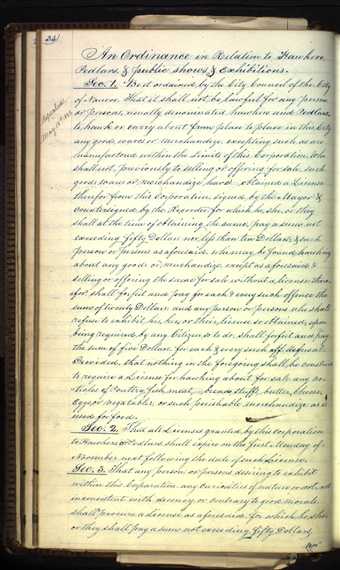 34
An Ordinance in Relation to Hawkers
Pedlars, & public shows & Exhibitions.
Sec. 1. Be it ordained by the City Council of the City
of That it shall not be Lawful for any person
or persons, usually denominated hawkers and Pedlars,
to hawk or carry about from place to place in this City
any goods, wares or merchandize, excepting such as are
manufactured within the Limits of this Corporation, who
shall not, previously to selling or offering for sale, such
goods wares or merchandize have obtained a License
therefor from this Corporation signed by the Mayor &
Countersigned by the Recorder, for which he, she, or they
shall at the time of obtaining the same, pay a sum not
exceeding fifty Dollars nor less than ten Dollars, & such
person or persons as aforesaid who may be found hawking
about any goods or merchandize except as aforesaid &
selling or offering the same for sale without a license there
for shall forfeit and pay for each & every such offence the
sum of twenty Dollars and any person or persons who shall
refuse to exhibit his, her, or their license so obtained, upon
being required by any Citizen so to do, shall forfeit and pay
the sum of five Dollars for each & every such refusal.
Provided, that nothing in the foregoing shall be construed
to require a License for hawking about for sale any ar-
ticles of Poultry, fish, meat, bread stuffs, butter, cheese,
Eggs or vegetables, or such perishable merchandize as is
used for food.
Sec. 2. That all Licenses granted by this Corporation
to Hawkers or Pedlars shall expire on the first Monday of
November next following the date of such License.
Sec. 3. That any person or persons desiring to exhibit
within this Corporation any curiosities of nature or art, not
inconsistent with decency or contrary to good morals,
shall procure a License as aforesaid for which he, she
or they shall pay a sum not exceeding fifty Dollars
nor